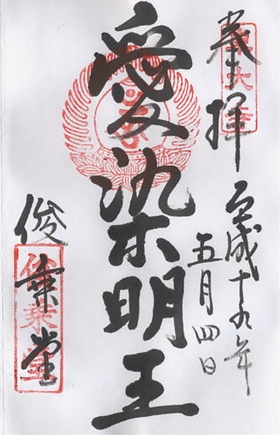 奉拝
平成十九年
五月四日
愛染明王
俊乗堂
俊乗堂